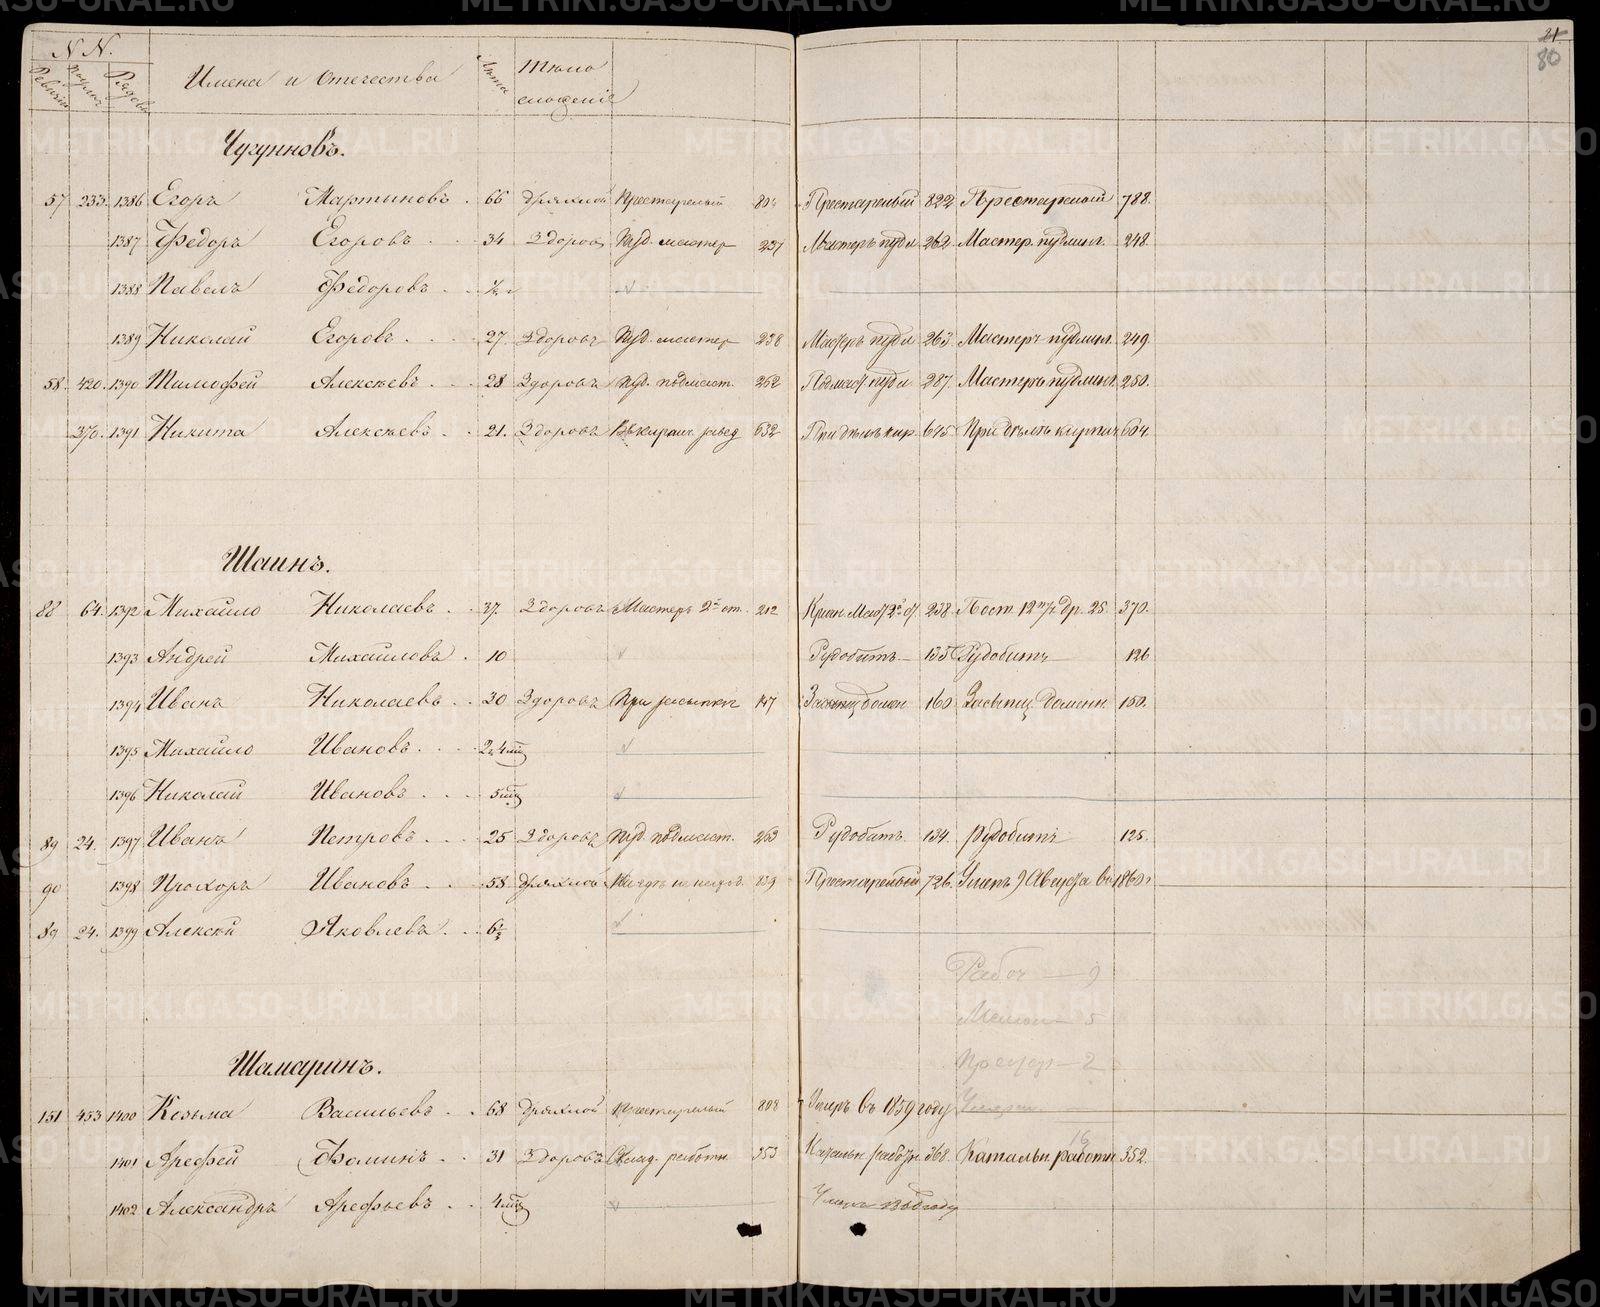 21
80
N N.
Ревизіи
Рядовы
Имена и Отечества
Лѣта
Тѣло
сложеніе
Чугунновъ.
57 233. 1386 Егоръ Мартиновъ. 66 Дряхлой Престарелый Престарелый 822 Престарелый 788.
1387 Федоръ Егоровъ 34 Здоровъ Пуд. мастер 237 Мастеръ пудл 262 Мастер. пудлинг. 248.
1388 Павелъ Федоровъ
1389 Николай Егоровъ. 27. Здоровъ Пуд. мастер 238 Мастеръ пудл 263. Мастеръ пудлинг. 249.
58. 420. 1390 Тимофей Алексѣевъ 28 Здоровъ Пуд. подмаст. 262 Подмаст. пудл 287. Мастеръ пудлинг. 250.
370. 1391 Никита Алексѣевъ 21. Здоровъ 632 При дѣлѣ кир. 645 При дѣлѣ кирпич 604.
Шаинъ.
88 64. 1392 Михайло Николаевъ 37. Здоровъ Мастеръ 2й ст. 212 238. 370.
1393 Андрей Михайловъ. 10 Рудобитъ 135 Рудобитъ 126
1394 Иванъ Николаевъ 30 Здоровъ При засыпке 147 Засыпщ. домен 160. Засыпщ. Доменн 150.
1395 Михайло Ивановъ. 2 4 мц
1396 Николай Ивановъ 5 мц
89 24. 1397 Иванъ Петровъ 25 Здоровъ Пуд. подмаст. 263 Рудобитъ. 134. Рудобитъ 125.
90 1398 Прохоръ Ивановъ 58 Дряхлой Престарелый 726. Умеръ 9 Августа въ 1860 г
89 24. 1399 Алексѣй Яковлевъ 6½
Рабоч — 9
Малол — 5
Престар — 2
Шамаринъ.
151 453 1400 Козьма Васильевъ 68 Дряхлой Престарелый 808 Умеръ въ 1859 году
16
1401 Арефей Фоминъ 31 Здоровъ Склад. работн 353 Катальн работн. 368. Катальн. работн 352.
1402 Александръ Арефьевъ 4 мц
METRIKI.GASO-URAL.RU